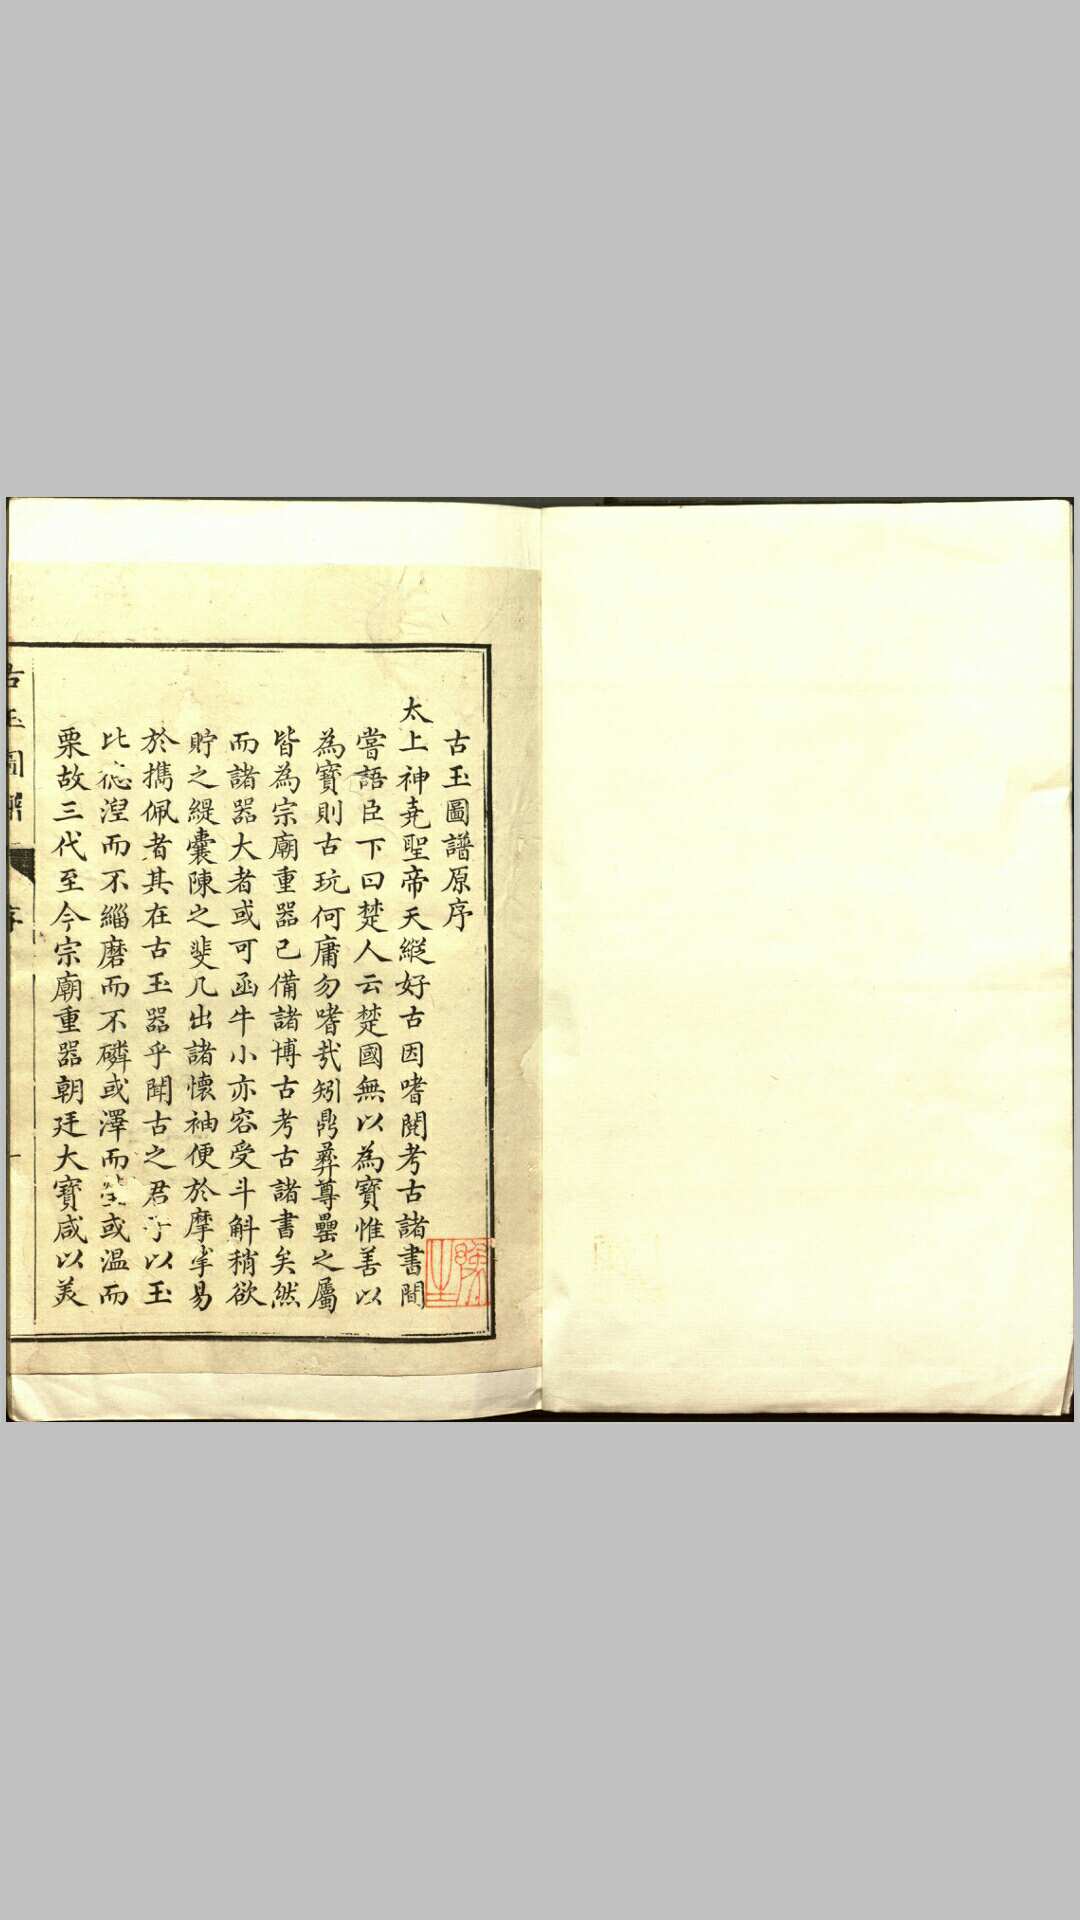 古玉圖譜原序
太上神堯聖帝天縱好古因嗜閱考古諸書間
嘗語臣下曰楚人云楚國無以為寶惟善以
為寶則古玩何庸勿嗜㢤矧鼎彞尊罍之屬
皆為宗廟重器已備諸博古考古諸書矣然
而諸器大者或可函牛小亦容受斗斛稍欲
貯之緹囊陳之斐几出諸懷袖便於摩挲易
於擕佩者其在古玉器乎聞古之君子以玉
比德湼而不緇磨而不磷或澤而或温而
栗故三代至今宗廟重器朝廷大寶咸以美
古玉圖譜 序 一